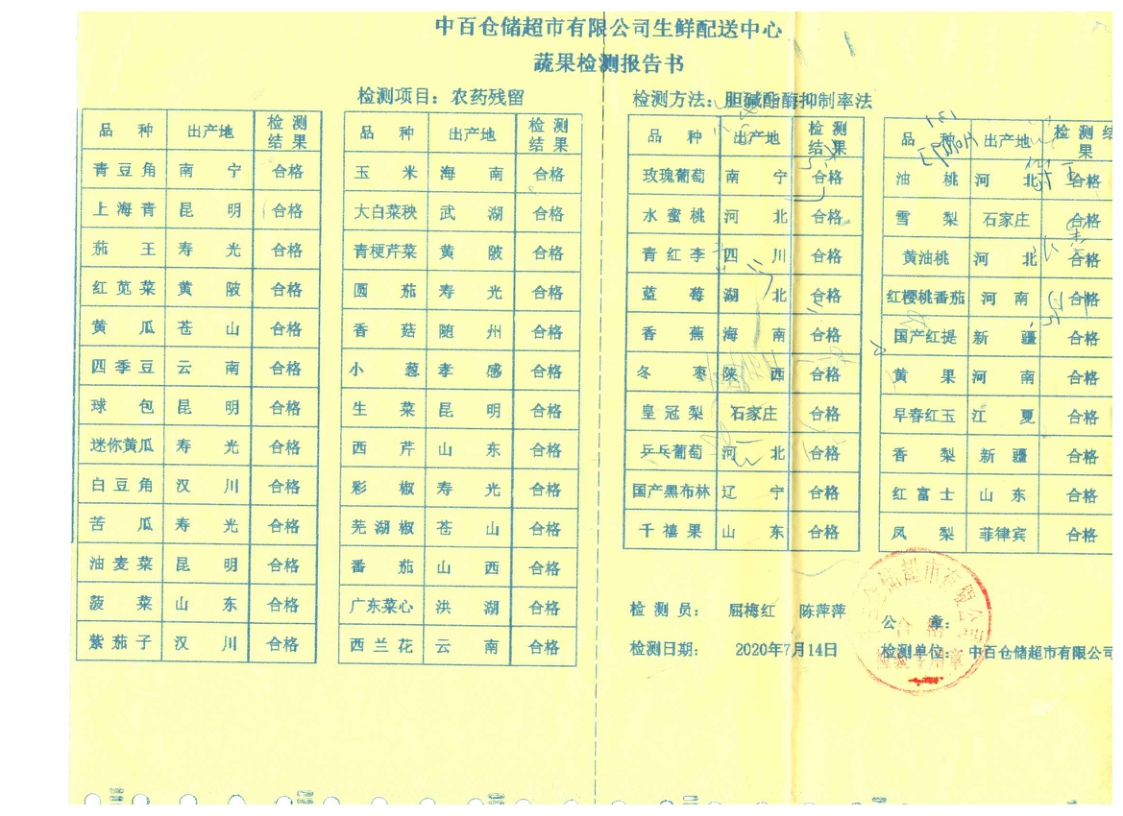 中百仓储超市有限公司生鲜配送中心
蔬果检测报告书
检测项目：农药残留 检测方法：胆碱酯酶抑制率法
品种 出产地 检测结果
青豆角 南宁 合格
上海青 昆明 合格
茄王 寿光 合格
红苋菜 黄陂 合格
黄瓜 苍山 合格
四季豆 云南 合格
球包 昆明 合格
迷你黄瓜 寿光 合格
白豆角 汉川 合格
苦瓜 寿光 合格
油麦菜 昆明 合格
菠菜 山东 合格
紫茄子 汉川 合格
品种 出产地 检测结果
玉米 海南 合格
大白菜秧 武湖 合格
青梗芹菜 黄陂 合格
圆茄 寿光 合格
香菇 随州 合格
小葱 孝感 合格
生菜 昆明 合格
西芹 山东 合格
彩椒 寿光 合格
芜湖椒 苍山 合格
番茄 山西 合格
广东菜心 洪湖 合格
西兰花 云南 合格
品种 出产地 检测结果
玫瑰葡萄 南宁 合格
水蜜桃 河北 合格
青红李 四川 合格
蓝莓 湖北 合格
香蕉 海南 合格
冬枣 陕西 合格
皇冠梨 石家庄 合格
乒乓葡萄 河北 合格
国产黑布林 辽宁 合格
千禧果 山东 合格
品种 出产地 检测结果
油桃 河北 合格
雪梨 石家庄 合格
黄油桃 河北 合格
红樱桃番茄 河南 合格
国产红提 新疆 合格
黄果 河南 合格
早春红玉 江夏 合格
香梨 新疆 合格
红富士 山东 合格
凤梨 菲律宾 合格
检测员： 屈梅红 陈萍萍 公章：
检测日期： 2020年7月14日 检测单位： 中百仓储超市有限公司